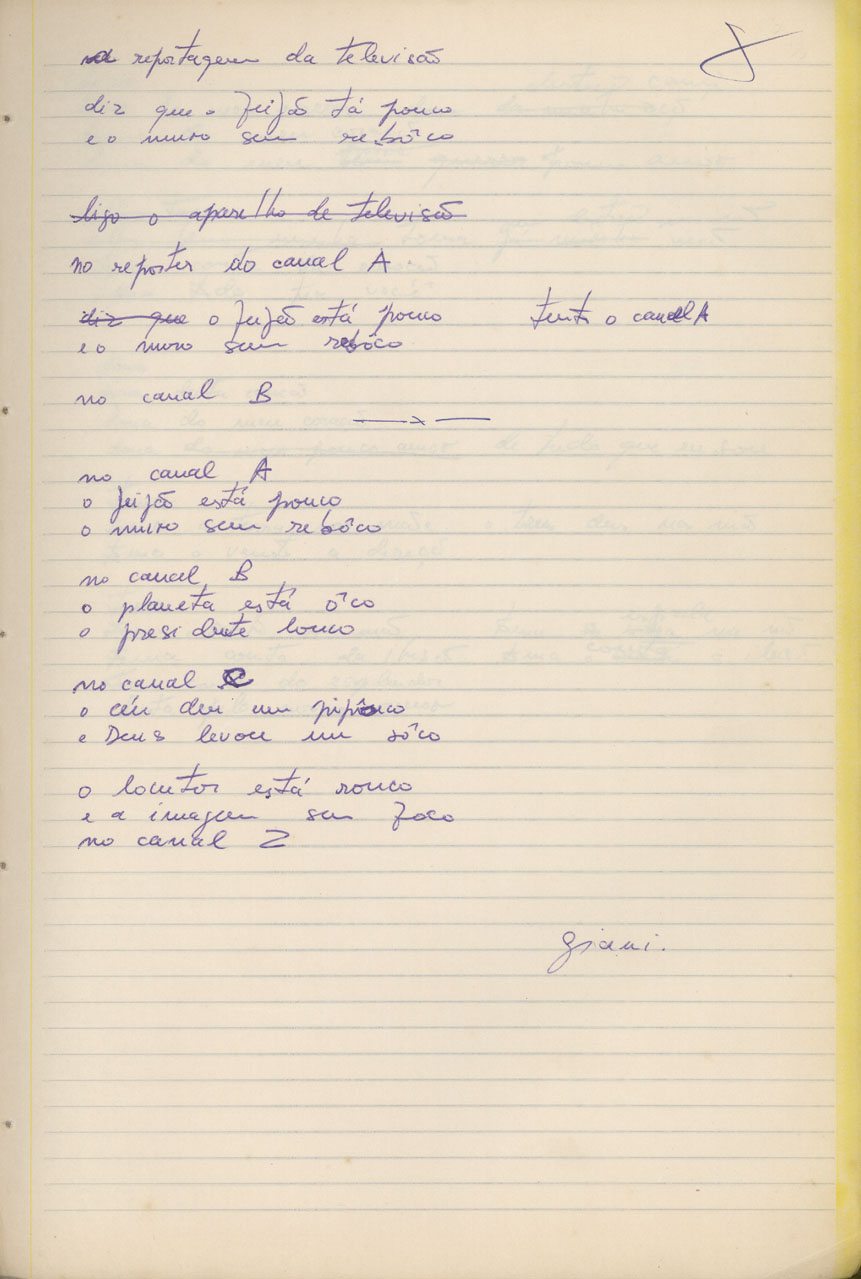 na reportagem da televisão
diz que o feijão tá pouco
e o muro sem rebôco
ligo o aparelho de televisão
no reporter do canal A
diz que o feijão está pouco tento o canal A
e o muro sem rebôco
no canal B
no canal A
o feijão está pouco
o muro sem rebôco
no canal B
o planeta está ôco
o presidente louco
no canal C
o céu deu um pipôco
e Deus levou um sôco
o locutor está rouco
e a imagem sem foco
no canal Z
giani.